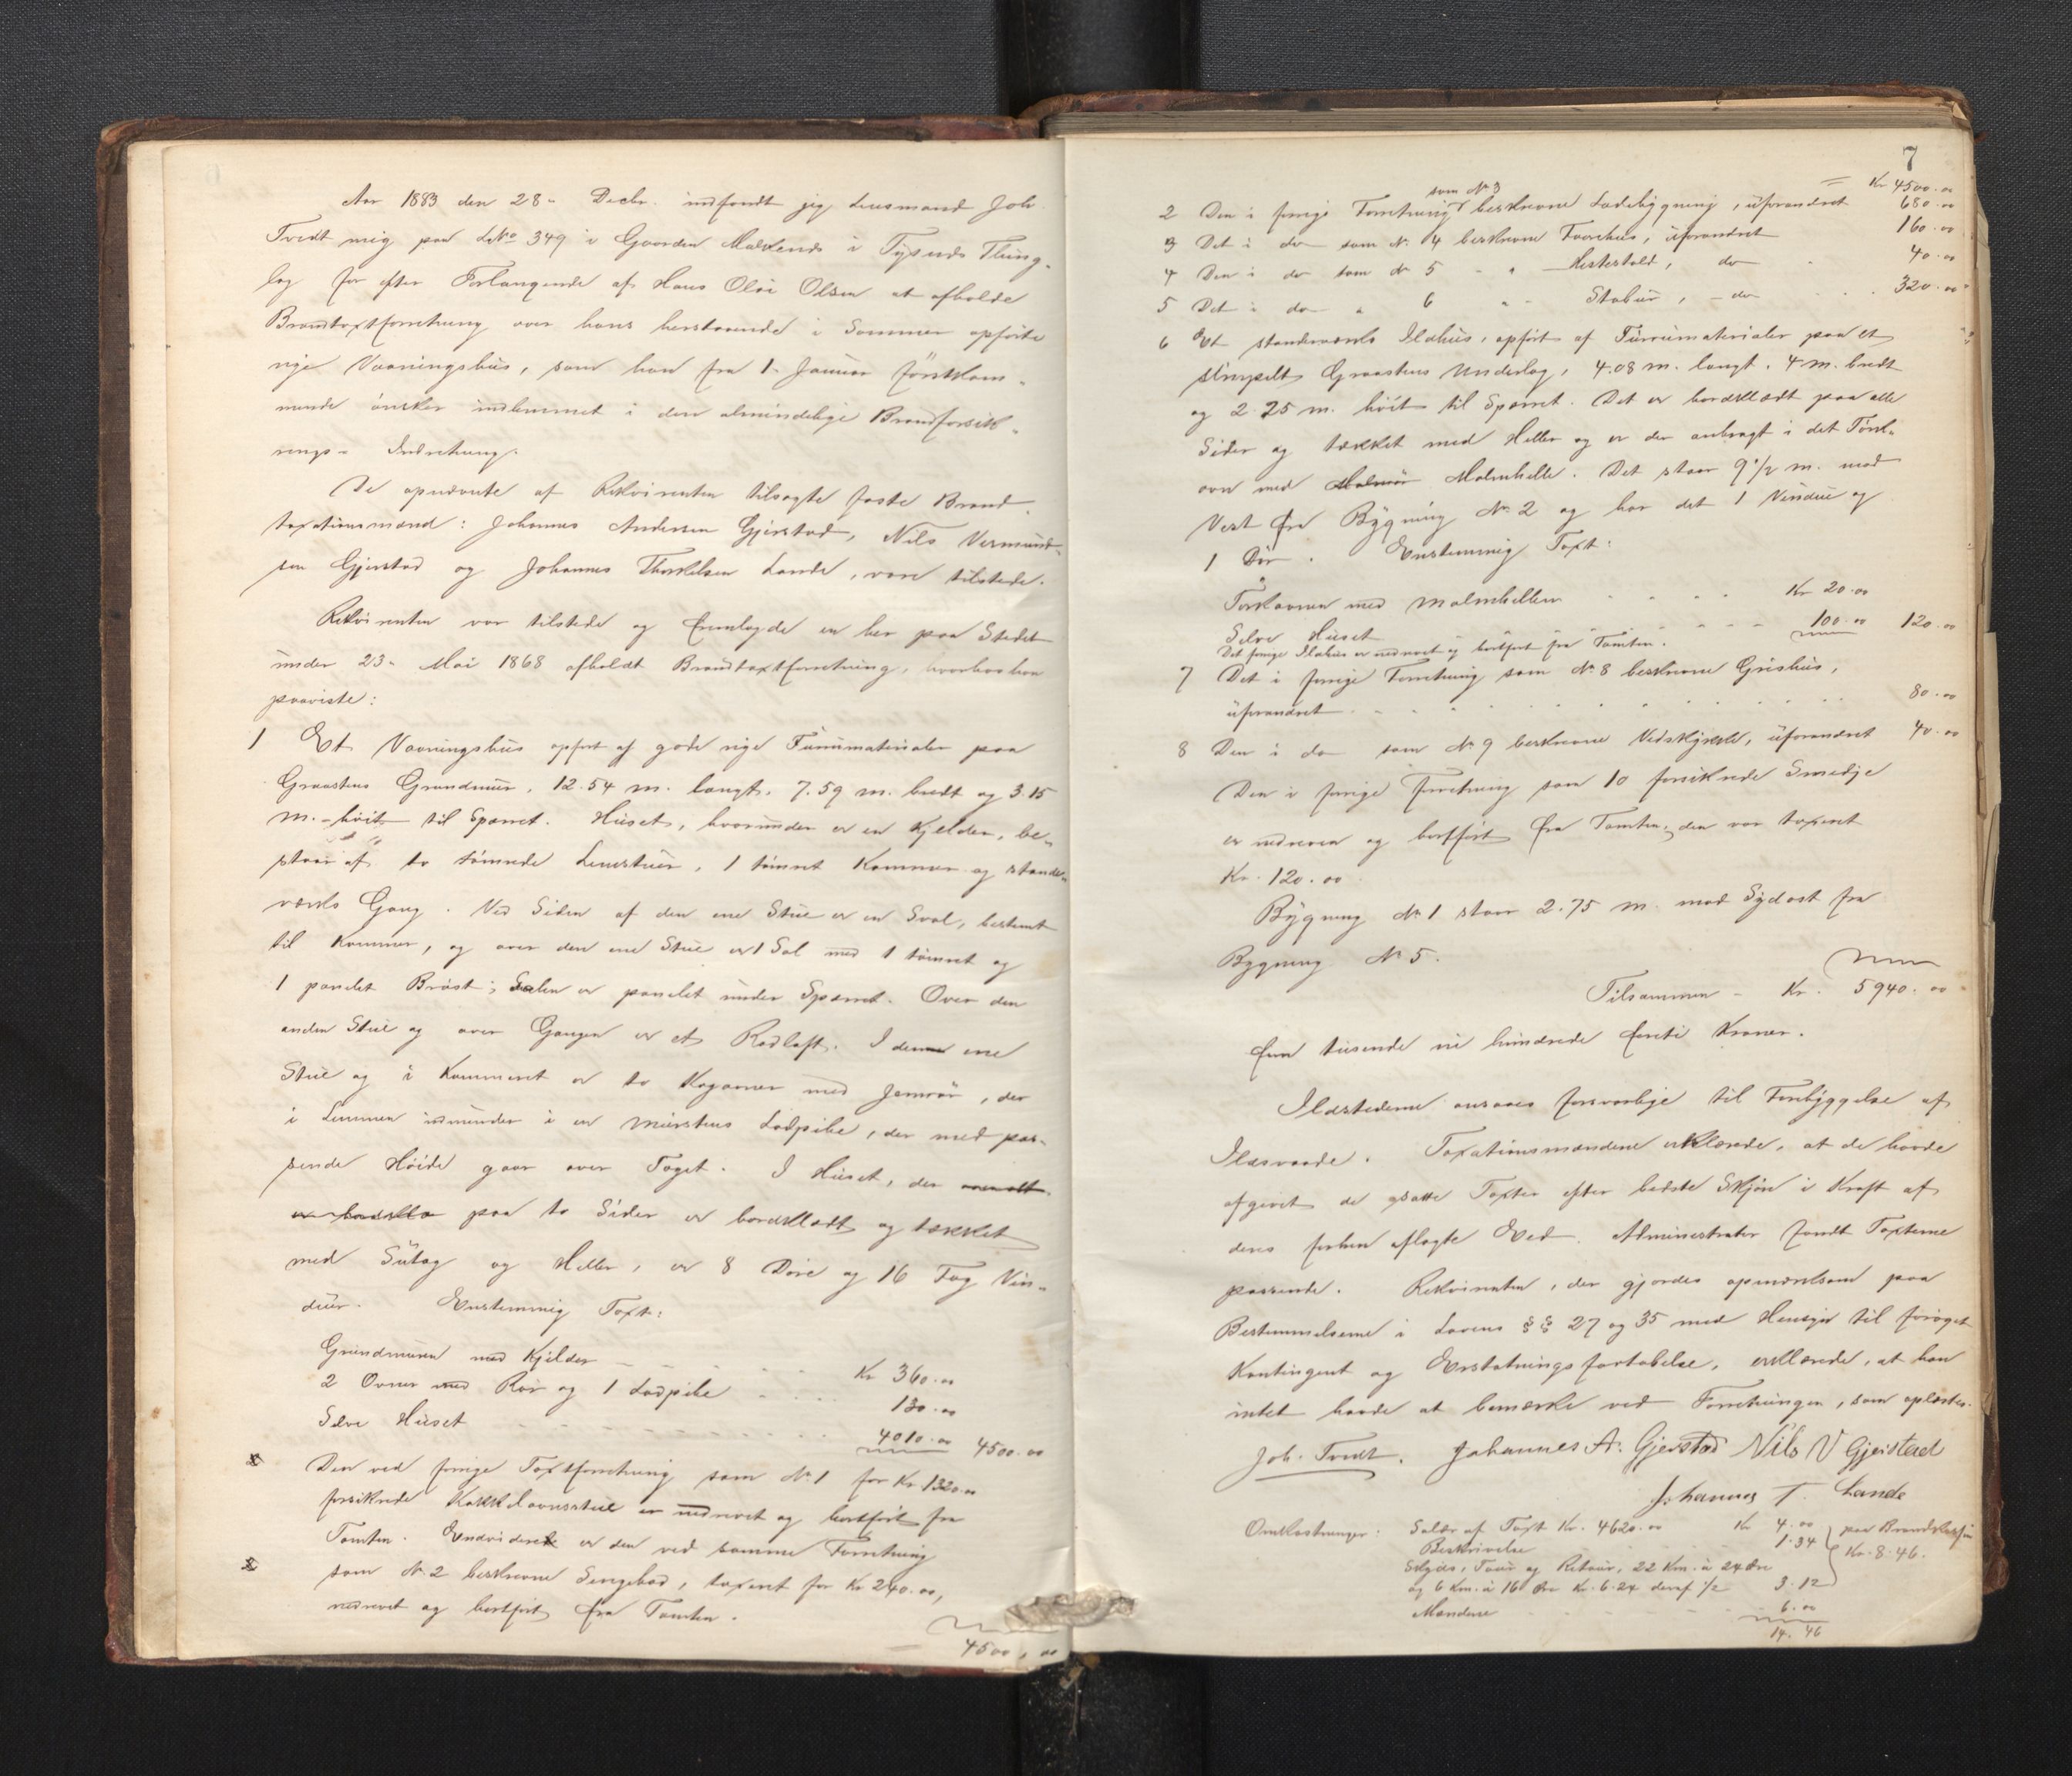 Aar 1883 den 28. Decbr. indfandt jeg Lensmand Joh.
Tvedt mig paa L. No 349 i Gaarden Malkenes i Tysnes Thing-
lag for efter Forlangende af Hans Olai Olsen at afholde
Brandtaxtforretning over hans herstaaende i Sommer opførte
nye Vaaningshus, som han fra 1. Januar førstkom-
mende ønsker indlemmet i den almindelige Brandforsik-
rings-Indretning.
De opnævnte af Rekvirenten tilsagte faste Brand-
taxationsmænd: Johannes Andersen Gjerstad, Nils Vermund-
sen Gjerstad og Johannes Thorkelsen Lande, vare tilstede.
Rekvirenten var tilstede og fremlagde en her paa Stedet
under 23. Mai 1868 afholdt Brandtaxtforretning, hvorhos han
paaviste:
1 Et Vaaningshus opført af gode nye Furumaterialer paa
Graastens Grundmur, 12.54 m. langt, 7.59 m. bredt og 3.15
m. høit til Sparret. Huset, hvorunder er en Kjelder, be-
staar af to tømrede Lemstuer, 1 tømret Kammer og stende-
værks Gang. Ved Siden af den ene Stue er en Sval, bestemt
til Kammer, og over den ene Stue er 1 Sal med 1 tømret og
1 panelet Brøst; Salen er panelet under Sparret. Over den
anden Stue og over Gangen er et Rodloft. I den ene
Stue og i Kammeret er to Kogovner med Jernrør, der
i Lemmen indmunder i en Murstens Lodpibe, der med pas-
sende Høide gaar over Taget. I Huset, der overalt
er bordklæ paa to Sider er bordklædt og tækket
med Sutag og Heller, er 8 Døre og 16 Fag Vin-
duer. Enstemmig Taxt:
Grundmuren med Kjelder Kr 360.00
2 Ovner med Rør og 1 Lodpibe 130.00
Selve Huset 4010.00 4500.00
Den ved forrige Taxtforretning som No 1 for Kr 1320.00
forsikrede Kakkelovnsstue er nedrevet og bortført fra
Tomten. Endvidere er den ved samme Forretning
som No 2 beskrevne Sengebod, taxeret for Kr 240.00,
nedrevet og bortført fra Tomten.
4500,00
7
Kr 4500.00
som No 3
2 Den i forrige Forretning beskrevne Ladebygning, uforandret 680.00
3 Det i do som No 4 beskrevne Faarehus, uforandret 160.00
4 Den i do som No 5 - " - Hestestald, do - 40.00
5 Det i do " 6 " - Stabur, - do - 320.00
6 Et stendeværks Ildhus, opført af Furumaterialer paa et
simpelt Graastens Underlag, 4.08 m. langt, 4 m. bredt
og 2.25 m. høit til Sparret. Det er bordklædt paa alle
Sider og tækket med Heller og er der anbragt i det Tørk-
ovn med Malmør Malmhelle. Det staar 9 1/2 m. mod
Vest fra Bygning No 2 og har det 1 Vindue og
1 Dør. Enstemmig Taxt:
Tørkovnen med Malmhellen Kr 20.00
Selve Huset 100.00 120.00
Det forrige Ildhus er nedrevet og bortført fra Tomten.
7 Det i forrige Forretning som No 8 beskrevne Grishus,
uforandret 80.00
8 Den i do som No 9 beskrevne Vedskykkje, uforandret 40.00
Den i forrige Forretning som 10 forsikrede Smedje
er nedreven og bortført fra Tomten; den var taxeret
Kr. 120.00
Bygning No 1 staar 2.75 m. mod Sydost fra
Bygning No 5.
Tilsammen - Kr. 5940.00
fem tusende ni hundrede firti Kroner.
Ildstederne ansaaes forsvarlige til Forebyggelse af
Ildsvaade. Taxationsmændene erklærede, at de havde
afgivet de ansatte Taxter efter bedste Skjøn i Kraft af
deres forhen aflagte Eed. Administrator fandt Taxterne
passende. Rekvirenten, der gjordes opmærksom paa
Bestemmelserne i Lovens §§ 27 og 35 med Hensyn til forøget
Kontingent og Erstatningsfortabelse, erklærede, at han
intet havde at bemærke ved Forretningen, som oplæstes.
Joh. Tvedt. Johannes A. Gjerstad Nils V Gjerstad
Johannes T. Lande
Omkostninger: Salær af Taxt Kr. 4620.00 Kr 4.00 paa Brandkassen
Beskrivelse 1.34 Kr. 8.46.
Skyds, Tour og Retour, 22 Km. à 24 Øre
og 6 Km. à 16 Øre Kr. 6.24 deraf 1/2 3.12
Mændene 6.00
14.46